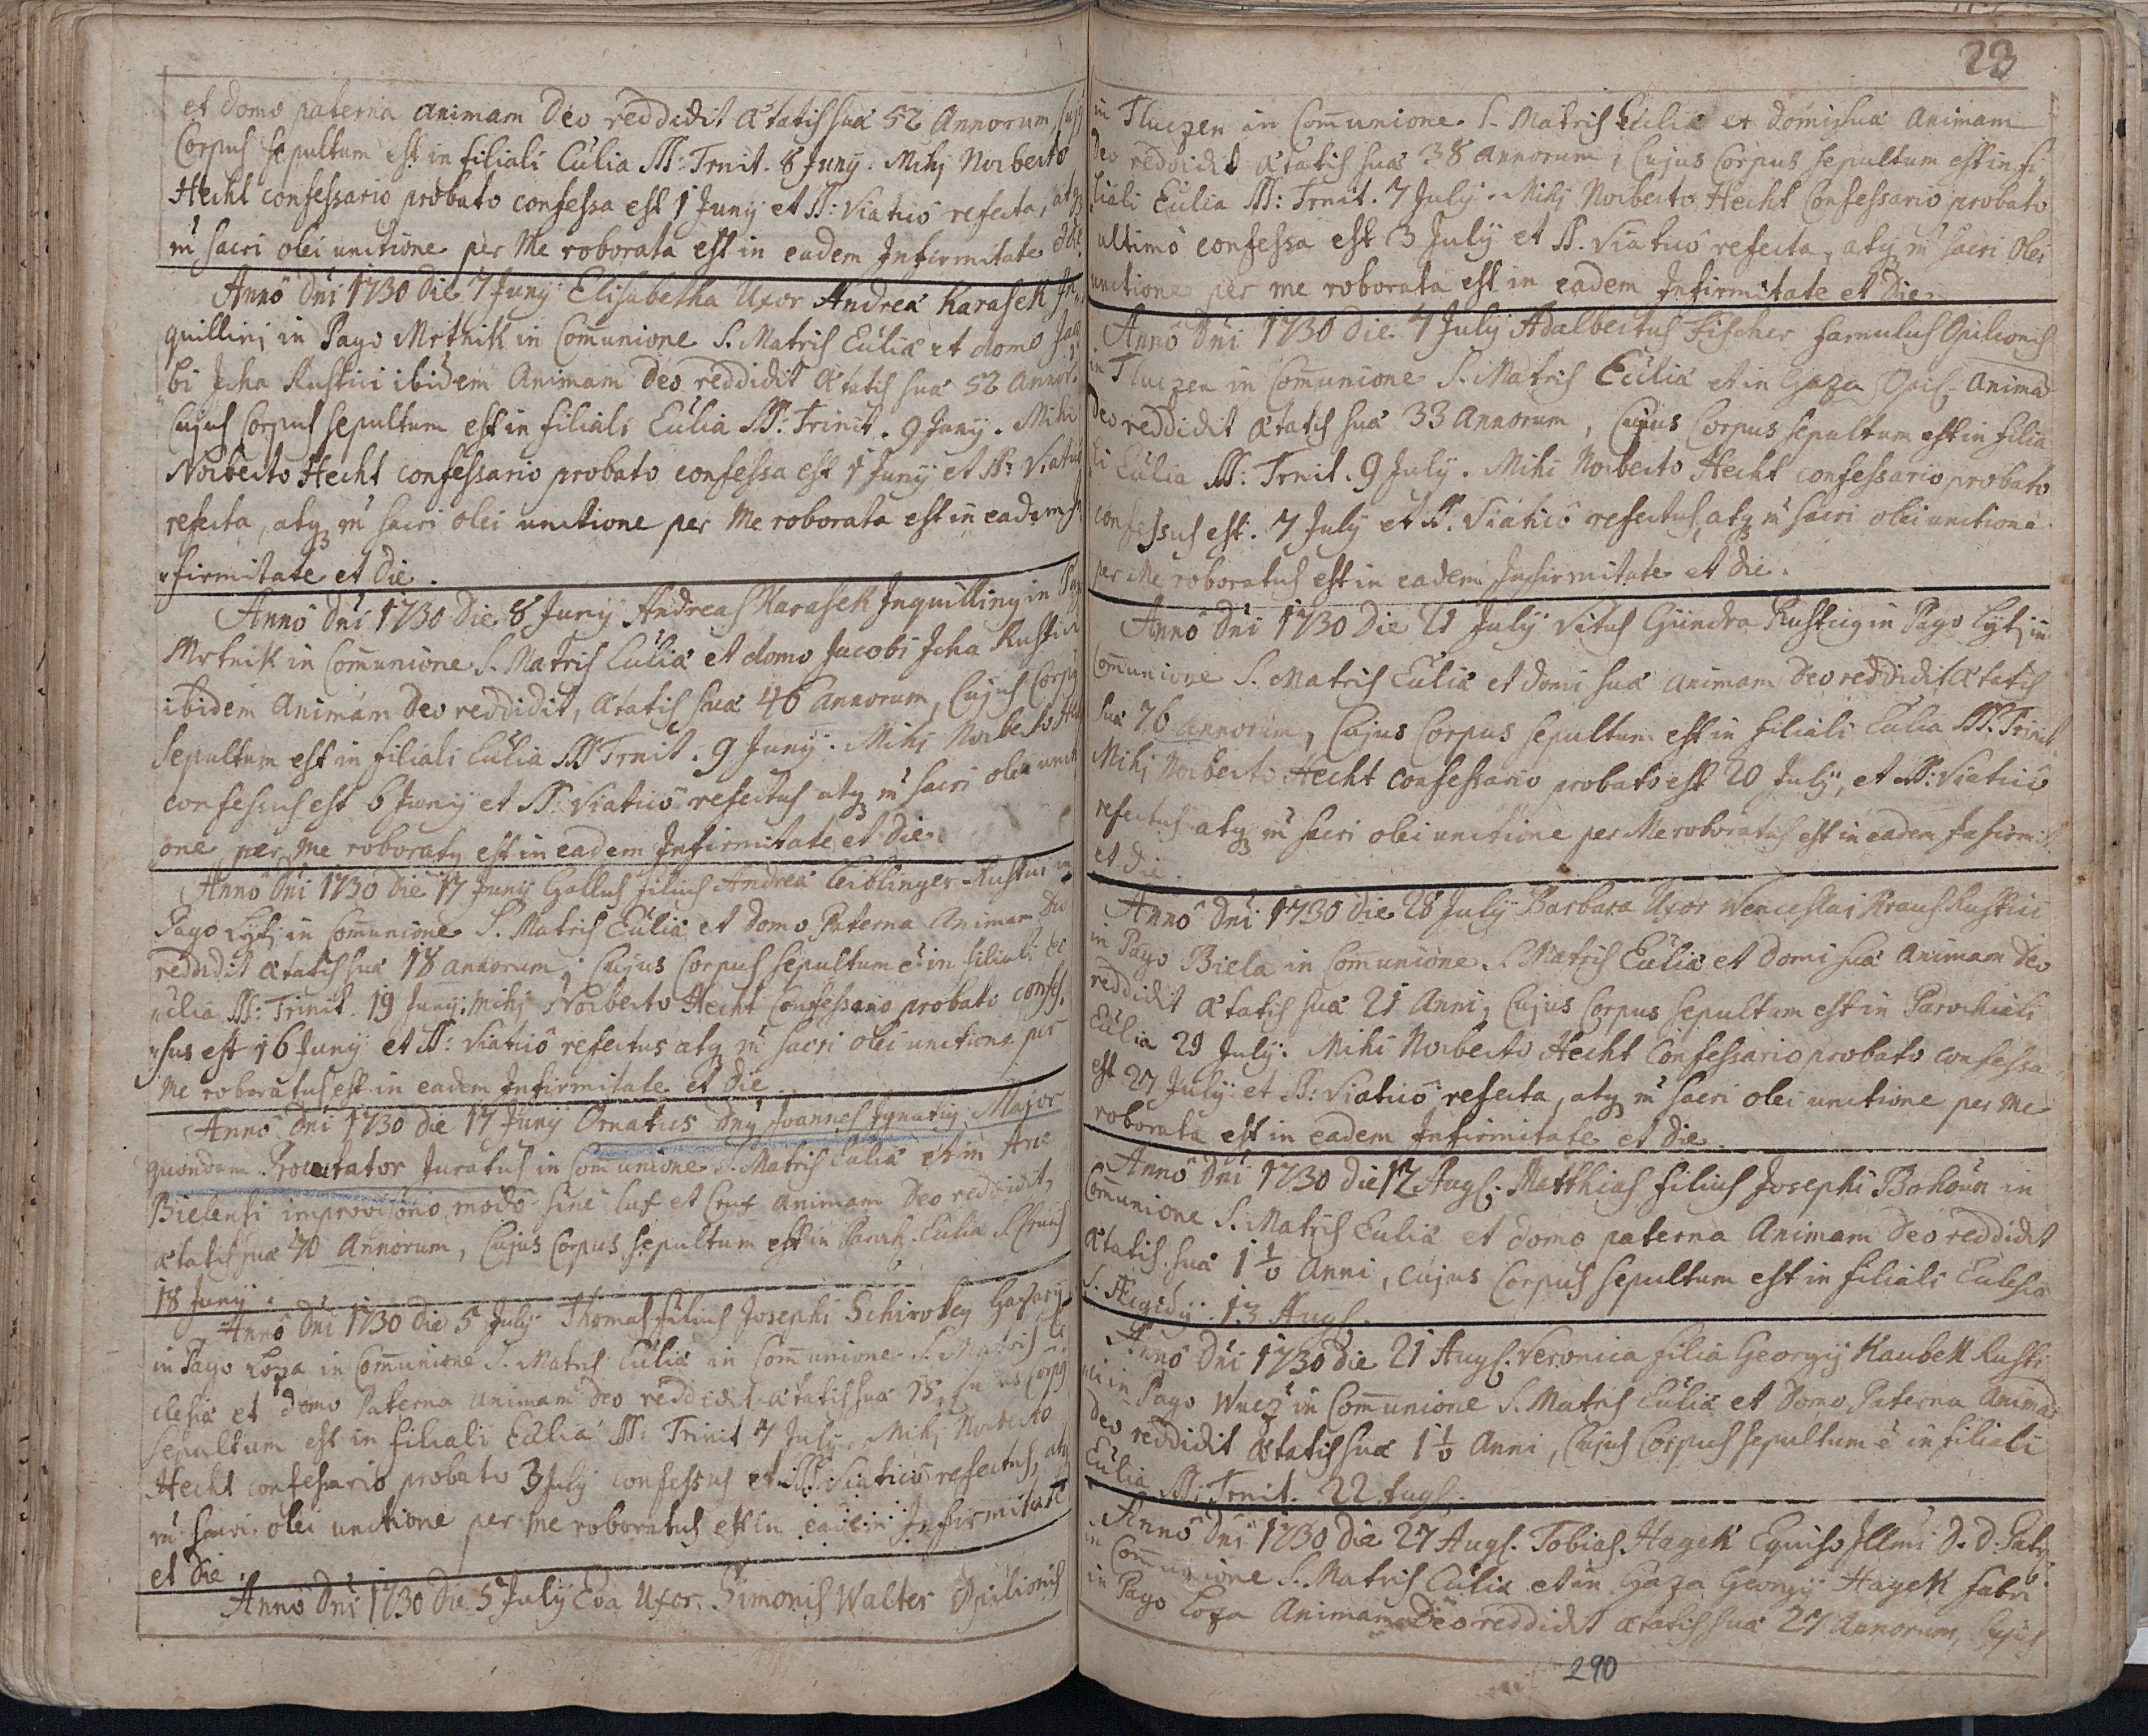 et domo paterna animam Deo reddidit ætatis suæ 52 Annorum, Cujq
Corpus sepultum est in filiali Ecclia SS: Trnit. 8 Junÿ. Mihj Norberto
Hecht confessario probato confessa est 1 Junÿ et SS: Viaticô refecta, atq
m̃ sacri olei unctione per Me roborata est in eadem Infirmitate et die.
Annô Dni 1730 Die 7 Junÿ Elisabetha Uxor Andreæ Karasek In„
quillinj in Pago Mrtnik in Com̄unione S. Matris Eccliæ et domo Jaco
„bi Jcha Rustici ibidem Animam Deo reddidit ætatis suæ 52 Annor.
Cujus Corpus sepultum est in filiali Ecclia SS: Trinit. 9 Junÿ. Mihi
Norberto Hecht confessario probato confessa est 1 Junÿ et SS: Viaticô
refecta, atq m̃ sacri olei unctione per Me roborata est in eadem In
„firmitate et Die.
Annô Dni 1730 Die 8 Junÿ Andreas Karasek Inquillinq in Pago
Mrtnik in Com̄unione S. Matris Eccliæ et domo Jacobi Jcha Rustici
ibidem Animam Deo reddidit, ætatis suæ 46 annorum, Cujus Corpus
sepultum est in filiali Ecclia SS Trnit. 9 Junÿ. Mihj Norberto Hecht
confessus est 6 Junÿ et SS: Viaticô refectus atq m̃ sacri olei uncti
one per me roboratq est in eadem Infirmitate et Die.
Annô Dni 1730 Die 17 Junÿ Gallus filius Andreæ Leiblinger Rustici in
Pago Lyti in Com̄unione S. Matris Eccliæ et domo Paterna Animam Deo
reddidit ætatis suæ 18 annorum, Cujus Corpus sepultum ē in filiali Ec
„clia SS: Trinit. 19 Junÿ. Mihj Norberto Hecht Confessario probato confes.
„sus est 16 Junÿ et SS: Viaticô refectus atq m̃ sacri olei unctione per
Me roboratus est in eadem Infirmitate et Die
Anno Dni 1730 die 17 Junÿ Ornatus Dnq Joannes Ignatiq Major
quondam Procurator Juratus in Com̄unione S. Matris Eccliæ et in Arce
Bielensi improviso modo sine lux et Crux animam Deo reddidit,
ætatis suæ 70 Annorum, Cujus Corpus sepultum est in Ecclia S. Crucis
18 Junÿ.
Annô Dni 1730 Die 5 Julÿ Thomas filius Josephi Schirokeÿ
in Pago Loza in Com̄unione S. Matris Eccliæ in Com̄unione S. Matris Ec
clesiæ et domo Paterna animam Deo reddidit ætatis suæ 15, Corpq
sepultum est in filiali Ecclia SS: Trinit 7 Julÿ. Mihj Norberto
Hecht confessario probato 3 Julÿ confessus et SS Viaticô refectus, atq
m̃ sacri olei unctione per me roboratus est in eadem Infirmitate
et Die.
Annô Dni 1730 Die 5 Julÿ Eva Uxor Simonis Walter Opilionis
23
in Tluczen in Com̄unione S. Matris Eccliæ et domi suæ Animam
Deo reddidit ætatis suæ 38 annorum, Cujus Corpus sepultum est in fi„
liali Ecclia SS: Trnit. 7 Julÿ. Mihj Norberto Hecht Confessario probato
ultimô confessa est 3 Julÿ et SS. Viaticô refecta, atq m̃ sacri Olei
unctione per me roborata est in eadem Infirmitate et Die.
Annô Dni 1730 Die 7 Julÿ Adalbertus Fischer famulus Opilionis
in Tluczen in Com̄unione S. Matris Eccliæ et in Gaza Opil. Animā
Deo reddidit ætatis suæ 33 Annorum, Cujus Corpus sepultum est in filia
li Ecclia SS: Trnit. 9 Julÿ. Mihi Norberto Hecht confessario probato
confessus est. 7 Julÿ et SS. Viaticô refectus, atq m̃ sacri olei unctione
per Me roboratus est in eadem Infirmitate et Die.
Annô Dni 1730 Die 21 Julÿ Vitus Gündra Rusticq in Pago Lyti in
Com̄unione S. Matris Eccliæ et domi suæ animam Deo reddidit ætatis
suæ 76 annorum, Cujus Corpus sepultum est in filiali Ecclia SS. Trinit.
Mihj Norberto Hecht confessario probato est 20 Julÿ, et SS: Viaticô
refectus atq m̃ sacri olei unctione per Me roboratus est in eadem Infirmit.
et Die.
Annô Dni 1730 Die 28 Julÿ Barbara Uxor Wenceslai Kraus Rustici
in Pago Biela in Com̄unione S. Matris Eccliæ et domi suæ animam Deo
reddidit ætatis suæ 21 Anni, Cujus Corpus sepultum est in Parochiali
Ecclia 29 Julÿ. Mihi Norberto Hecht Confessario probato confessa
est 27 Julÿ et SS: Viaticô refecta, atq m̃ sacri olei unctione per Me
roborata est in eadem Infirmitate et Die.
Annô Dni 1730 die 12 Augs. Matthias filius Josephi Bohoun in
Com̄unione S. Matris Eccliæ et domo paterna Animam Deo reddidit
ætatis suæ 1 ½ anni, cujus Corpus sepultum est in filiali Ecclesia
S. Aegidÿ. 13 Augs.
Annô Dni 1730 die 21 Augs. Veronica filia Georgÿ Kaubek Rusti
ci in Pago Wucz in Com̄unione S. Matris Eccliæ et Domo Paterna Animā
Deo reddidit ætatis suæ 1 ½ Anni, Cujus Corpus sepultum ē in filiali
Ecclia SS. Trnit. 22 Augs.
Annô Dni 1730 die 27 Augs. Tobias Hagek Equiso Illmi D. D. Patr.
in Com̄unione S. Matris Eccliæ et in Gaza Georgÿ Hagek fabri
in Pago Loza Animam Deo reddidit ætatis suæ 27 Annorum, Cujus
290